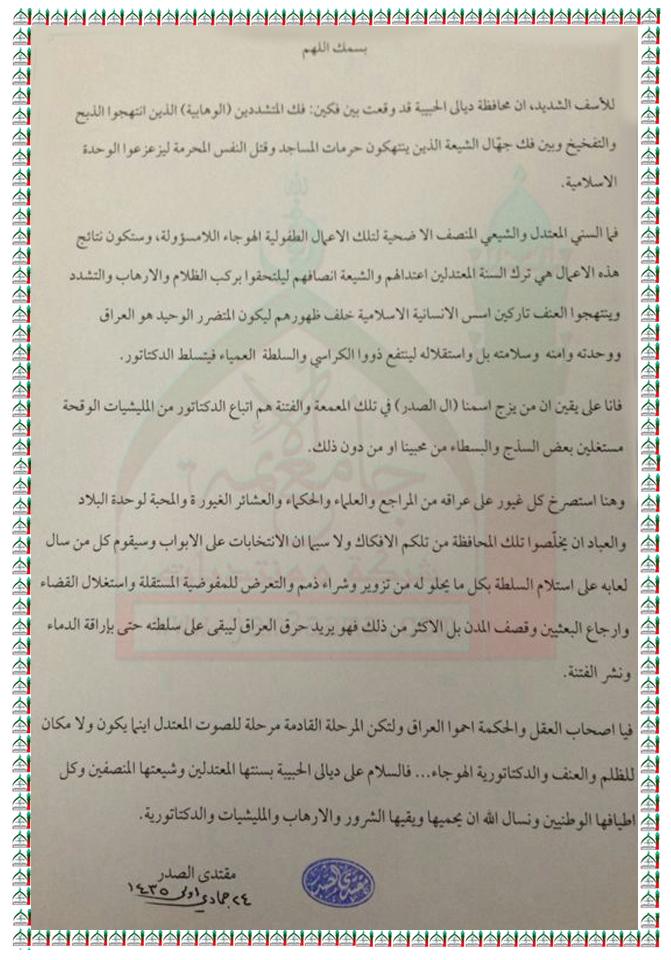 بسمك اللهم
للأسف الشديد، ان محافظة ديالى الحبيبة قد وقعت بين فكين: فك المتشددين (الوهابية) الذين انتهجوا الذبح
والتفخيخ وبين فك جهّال الشيعة الذين ينتهكون حرمات المساجد وقتل النفس المحرمة ليزعزعوا الوحدة
الاسلامية.
فما السني المعتدل والشيعي المنصف الا ضحية لتلك الاعمال الطفولية الهوجاء اللامسؤولة، وستكون نتائج
هذه الاعمال هي ترك السنة المعتدلين اعتدالهم والشيعة انصافهم ليلتحقوا بركب الظلام والارهاب والتشدد
وينتهجوا العنف تاركين اسس الانسانية الاسلامية خلف ظهورهم ليكون المتضرر الوحيد هو العراق
ووحدته وامنه وسلامته بل واستقلاله لينتفع ذووا الكراسي والسلطة العمياء فيتسلط الدكتاتور.
فانا على يقين ان من يزج اسمنا (ال الصدر) في تلك المعمعة والفتنة هم اتباع الدكتاتور من المليشيات الوقحة
مستغلين بعض السذج والبسطاء من محبينا او من دون ذلك.
وهنا استصرخ كل غيور على عراقه من المراجع والعلماء والحكماء والعشائر الغيورة والمحبة لوحدة البلاد
والعباد ان يخلّصوا تلك المحافظة من تلكم الافكاك ولا سيما ان الانتخابات على الابواب وسيقوم كل من سال
لعابه على استلام السلطة بكل ما يحلو له من تزوير وشراء ذمم والتعرض للمفوضية المستقلة واستغلال القضاء
وارجاع البعثيين وقصف المدن بل الاكثر من ذلك فهو يريد حرق العراق ليبقى على سلطته حتى بإراقة الدماء
ونشر الفتنة.
فيا اصحاب العقل والحكمة احموا العراق ولتكن المرحلة القادمة مرحلة للصوت المعتدل اينما يكون ولا مكان
للظلم والعنف والدكتاتورية الهوجاء... فالسلام على ديالى الحبيبة بسنتها المعتدلين وشيعتها المنصفين وكل
اطيافها الوطنيين ونسال الله ان يحميها ويقيها الشرور والارهاب والمليشيات والدكتاتورية.
مقتدى الصدر
٢٤ جمادي اولى ١٤٣٥
مقتدى الصدر
جامع الائمة
شبكة ومنتديات